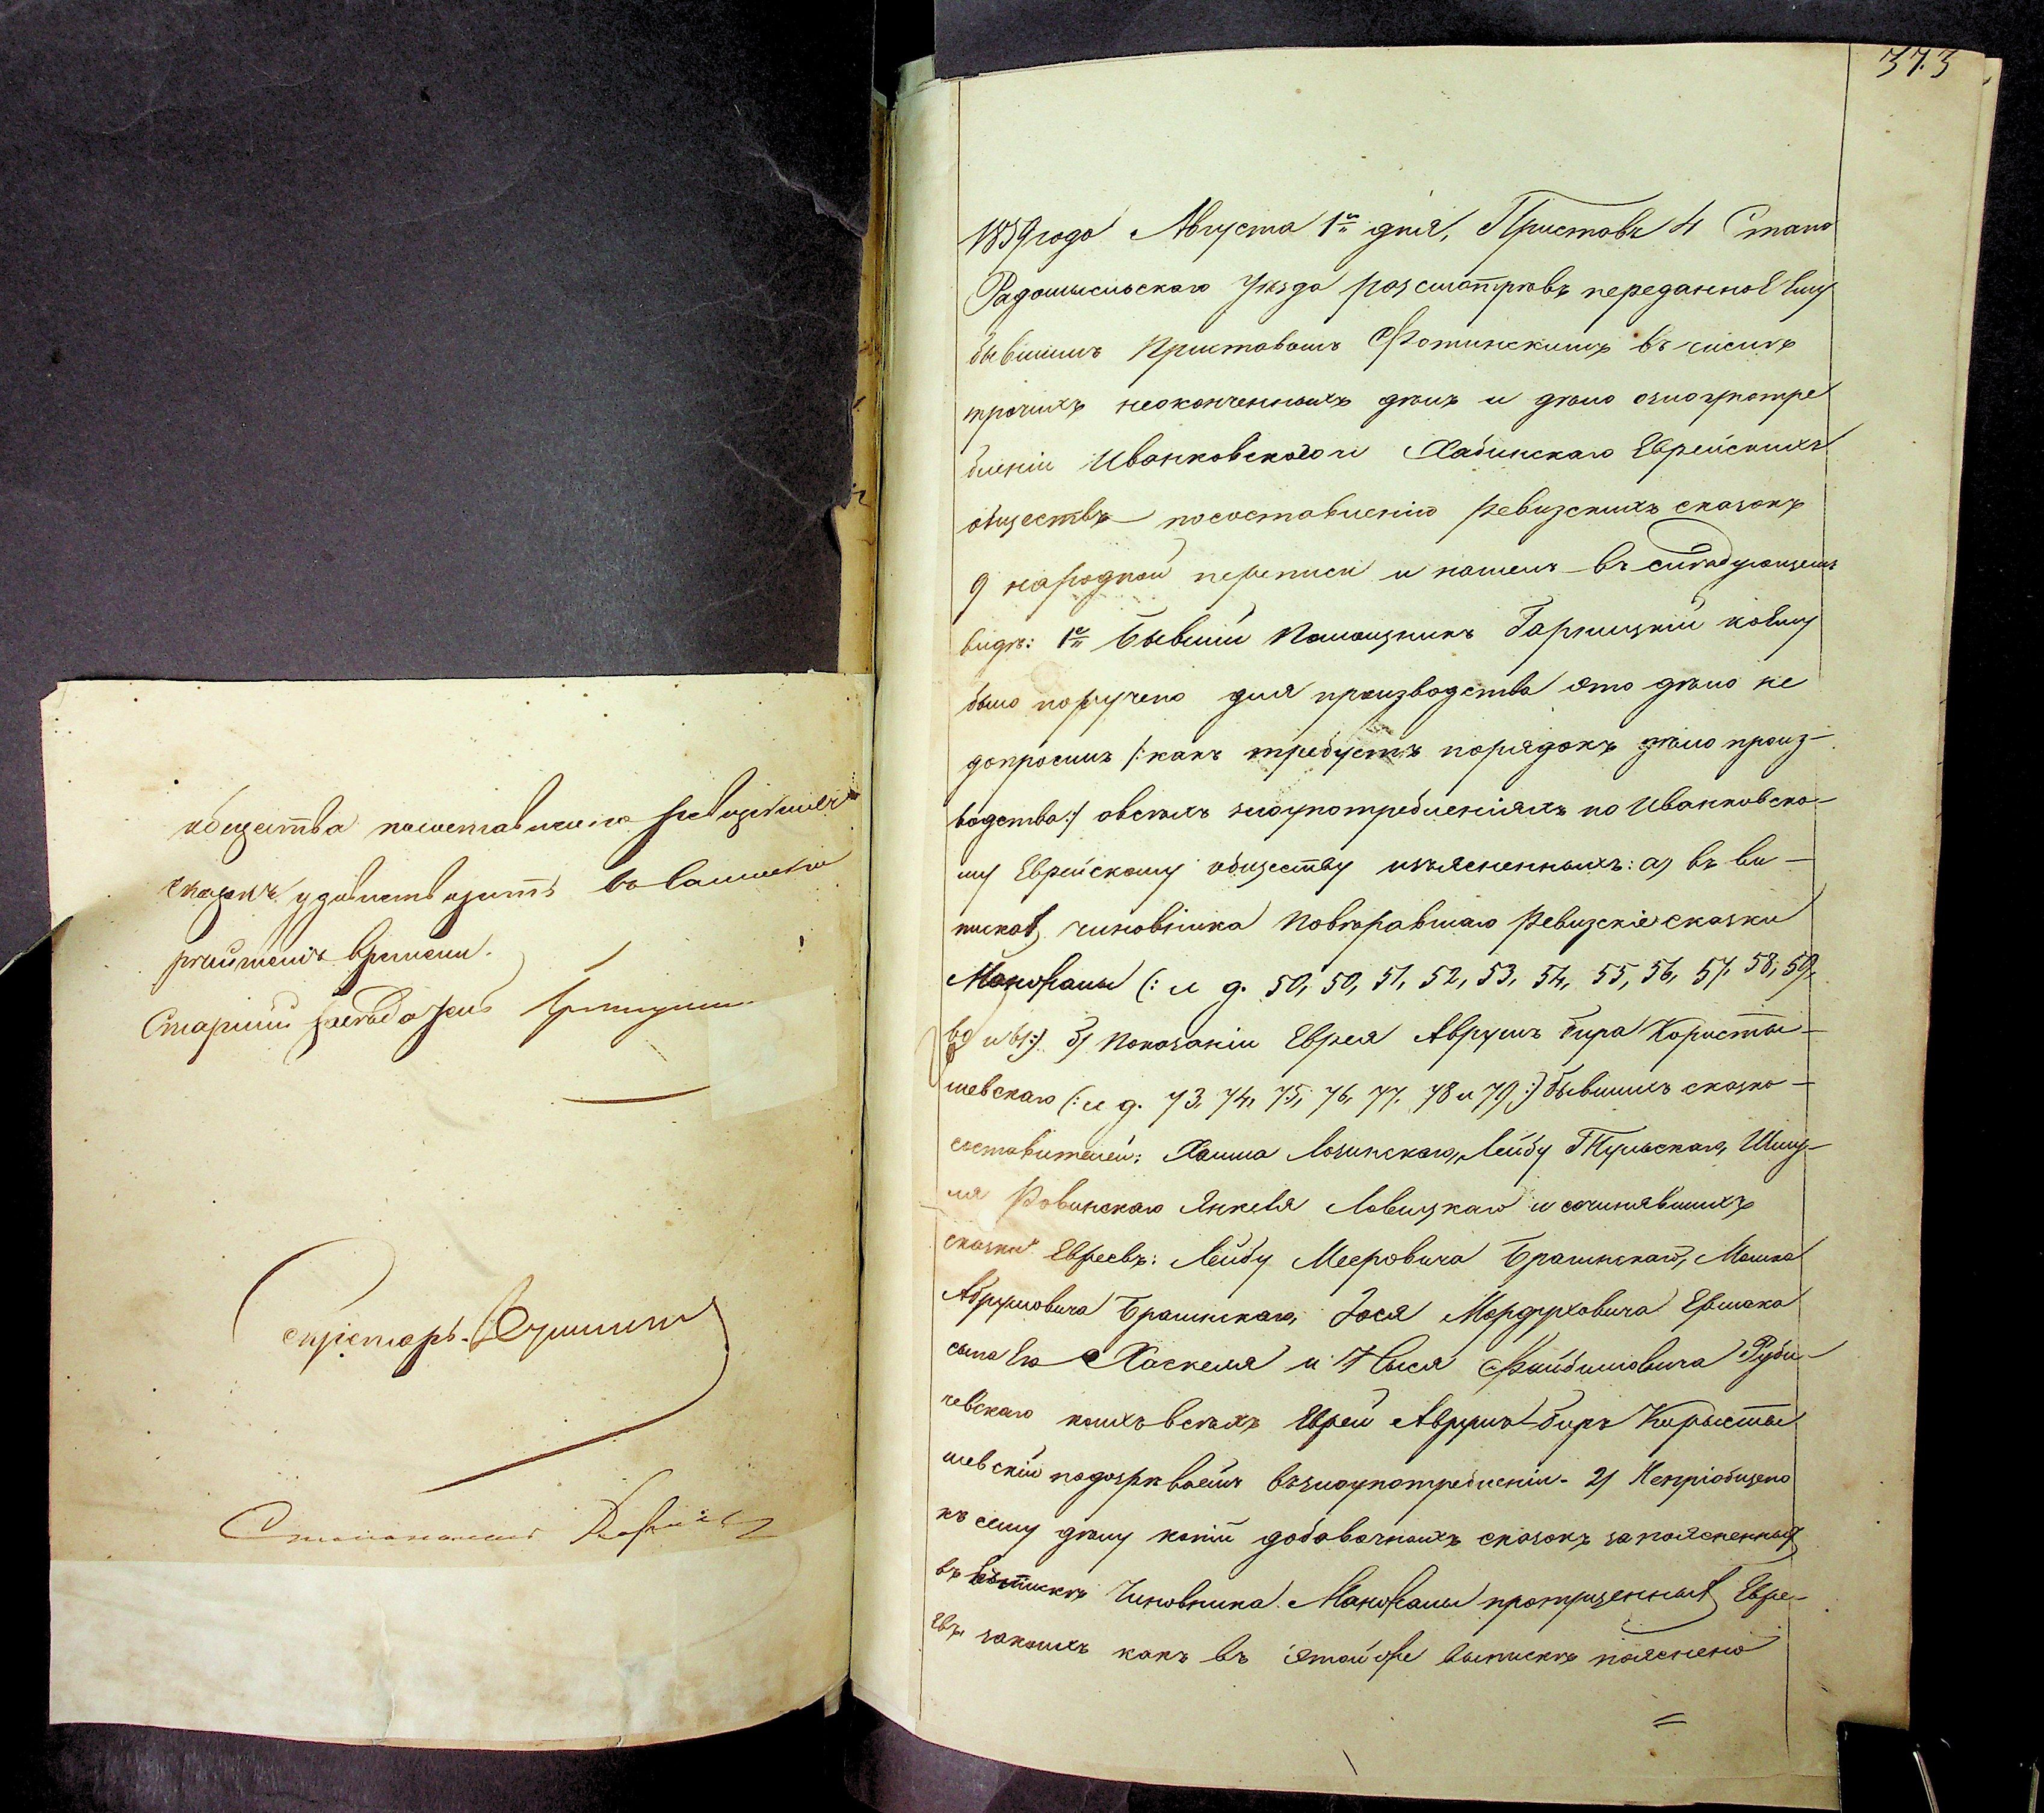 общества посоставленію ревизскихъ
сказокъ удовлетворить
времени.
Старшій
Секретарь
Столоначальникъ
373
1859 года Августа 1го дня, Приставъ 4 Стана
Радомысльскаго Уѣзда разсмотрѣвъ переданное ему
бывшимъ Приставомъ Фотинскимъ въ числѣ
прочихъ неоконченныхъ дѣлъ и дѣло озлоупотре
бленіи Иванковскаго и Хабинскаго Еврейскихъ
обществъ посоставленію Ревизскихъ сказокъ
9 народной переписи и нашелъ въ слѣдующемъ
видѣ: 1е Бывшій Помощникъ Гарницкій коему
было поручено для производства это дѣло не
допросилъ /:какъ требуетъ порядокъ дѣло произ-
водства:/ овсѣхъ злоупотребленіяхъ по Иванковско-
му Еврейскому обществу изъясненныхъ: а) въ вы-
пискѣ чиновника Повѣрявшаго Ревизскіе сказки
(: л д. 50, 50, 51, 52, 53, 54, 55, 56, 57, 58, 59,
60 и 61:) б) Показаніи Еврея Аврумъ Бира Кориcты-
шевскаго (: л д. 73, 74, 75, 76, 77, 78 и 79:) бывшихъ сказко-
составителей: Хаима Лозинскаго, Лейбу Тульскаго, Шму-
ля Ровинскаго Янкеля Ловицкаго и сочинявшихъ
сказки Евреевъ: Лейбу Мееровича Брагинскаго, Мошка
Абрумовича Брагинскаго, Іося Мордуховича Ершака
сына Его Хаскеля и Нысл Файбишовича Руби-
невскаго коихъ всѣхъ Еврей Аврумъ Биръ Корысты
шевскій подозрѣваетъ въ злоупотребленіи. 2) Непріобщено
къ сему дѣлу копій добавочныхъ сказокъ запоясненныя
въ выпискѣ Чиновника пропущенныхъ Евре-
евъ, закоихъ какъ въ этой же выпискѣ пояснено